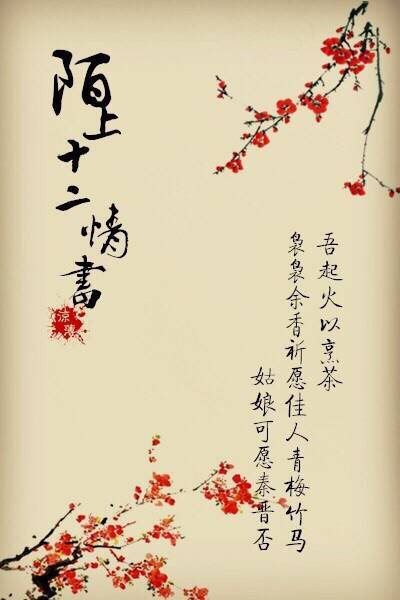 陌上十二情書
涼薄
吾起火以烹茶
袅袅余香祈愿佳人青梅竹马
姑娘可愿秦晋否